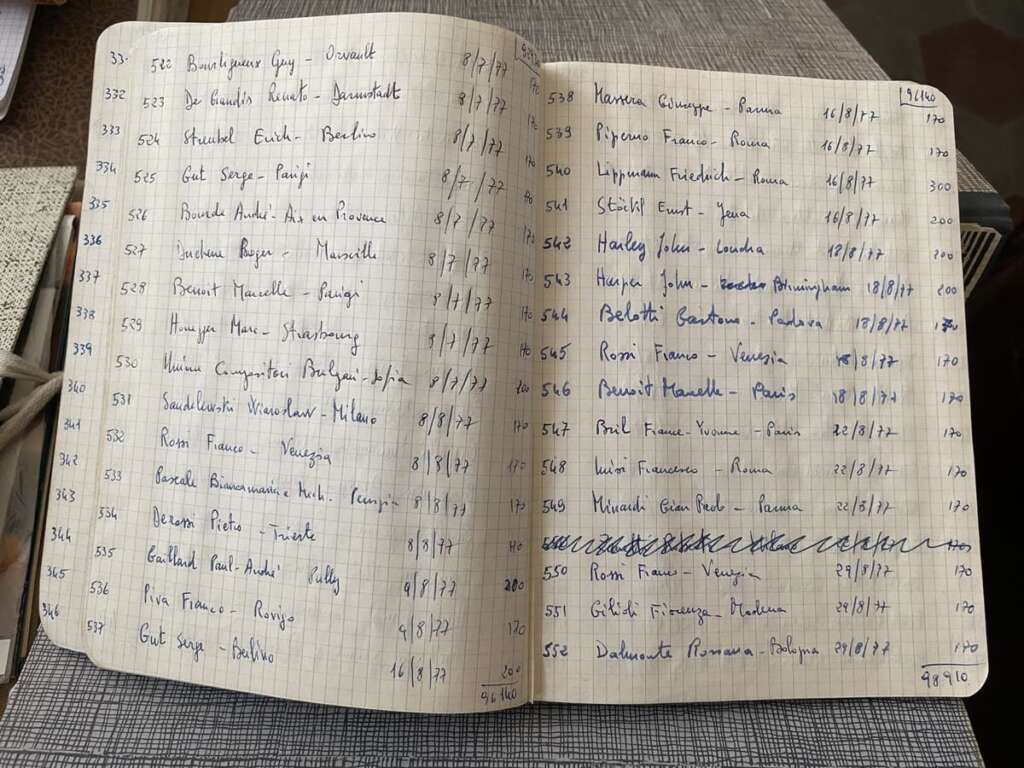 522 Bourligueux Guy - Orvault 8/7/77 170
332 523 De Candis Renato - Darmstadt 8/7/77 170
333 524 Streubel Erich - Berlino 8/7/77 170
334 525 Gut Serge - Parigi 8/7/77
335 526 Bourde André - Aix en Provence 8/7/77 170
336 527 Duchene Roger - Marseille 8/7/77 170
337 528 Benoit Marcelle - Parigi 8/7/77 170
338 529 Honegger Marc - Strasbourg 8/7/77 170
339 530 Unione Compositori Bulgari - Sofia 8/7/77 200
340 531 Sandelewski Wiaroslaw - Milano 8/8/77 170
341 532 Rossi Franco - Venezia 8/8/77 170
342 533 Pascale Biancamaria e Mich. Perugia 8/8/77 170
343 534 Derossi Pietro - Trieste 8/8/77 170
344 535 Gaillard Paul-André Pully 9/8/77 200
345 536 Piva Franco - Rovigo 9/8/77 170
346 537 Gut Serge - Berlino 16/8/77 200
96140
96140
538 Massera Giuseppe - Parma 16/8/77 170
539 Piperno Franco - Roma 16/8/77 170
540 Lippmann Friedrich - Roma 16/8/77 300
541 Stöckl Ernst - Jena 16/8/77 200
542 Harley John - Londra 18/8/77 200
543 Harper John - Birmingham 18/8/77 200
544 Belotti Gastone - Padova 18/8/77 170
545 Rossi Franco - Venezia 18/8/77 170
546 Benoit Marcelle - Paris 18/8/77 170
547 Bril France-Yvonne - Paris 22/8/77 170
548 Luisi Francesco - Roma 22/8/77 170
549 Minardi Gian Paolo - Parma 22/8/77 170
550 Rossi Franco - Venezia 29/8/77 170
551 Gilioli Fiorenza - Modena 29/8/77 170
552 Dalmonte Rossana - Bologna 29/8/77 170
98910